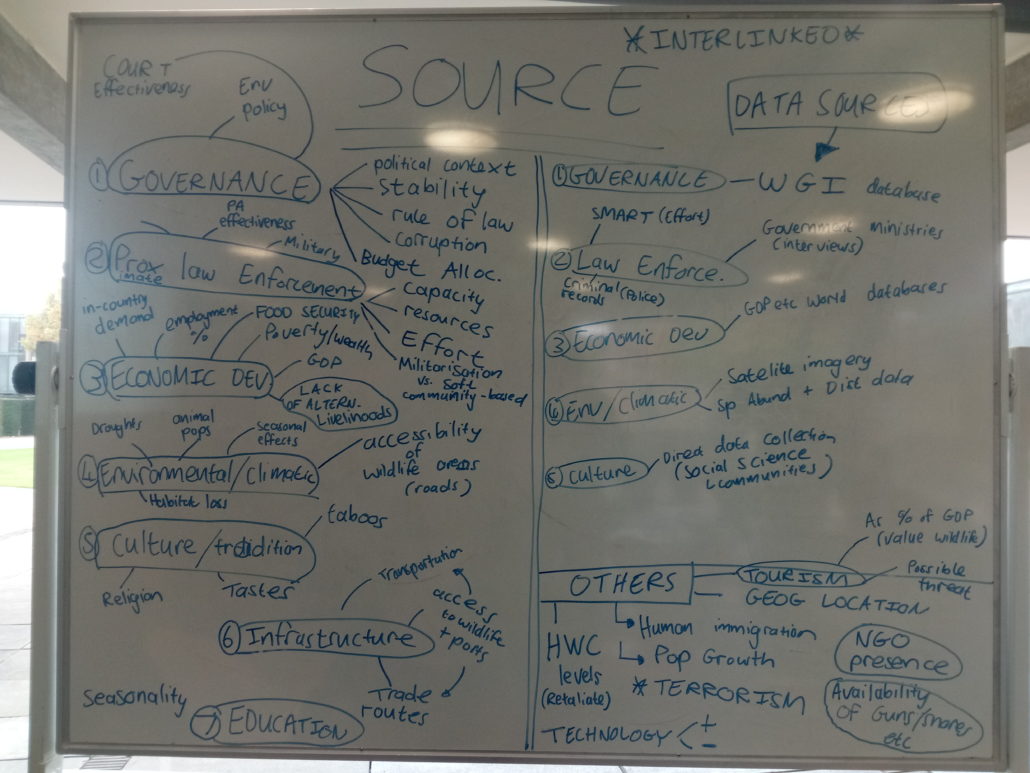 *INTERLINKED*
SOURCE
COURT
Effectiveness
Env
policy
① GOVERNANCE
political context
stability
rule of law
corruption
Budget Alloc.
PA
effectiveness
Military
② Prox
imate
law Enforcement
capacity
resources
Effort
Militarisation
vs. soft
community-based
in-country
demand
employment
%
FOOD SECURITY
Poverty/wealth
GDP
③ ECONOMIC DEV
LACK
OF ALTERN.
Livelihoods
Droughts
animal
pops
seasonal
effects
④ Environmental/Climatic
accessibility
of
wildlife areas
(roads)
Habitat loss
⑤ Culture/tradition
taboos
Religion
Tastes
Transportation
⑥ Infrastructure
access
to wildlife
+ ports
Trade
routes
Seasonality
⑦ EDUCATION
DATA SOURCES
① GOVERNANCE – WGI database
SMART (Effort)
Government ministries
(interviews)
② Law Enforce.
Criminal (Police)
records
③ Economic Dev
GDP etc World databases
④ Env/Climatic
Satelite imagery
Sp Abund + Dist data
⑤ Culture
Direct data collection
(social science
communities)
OTHERS
TOURISM
As % of GDP
(value wildlife)
Possible
threat
GEOG LOCATION
HWC
levels
(Retaliate)
Human immigration
Pop Growth
* TERRORISM
TECHNOLOGY < + -
NGO
presence
Availability
OF Guns/snares
etc